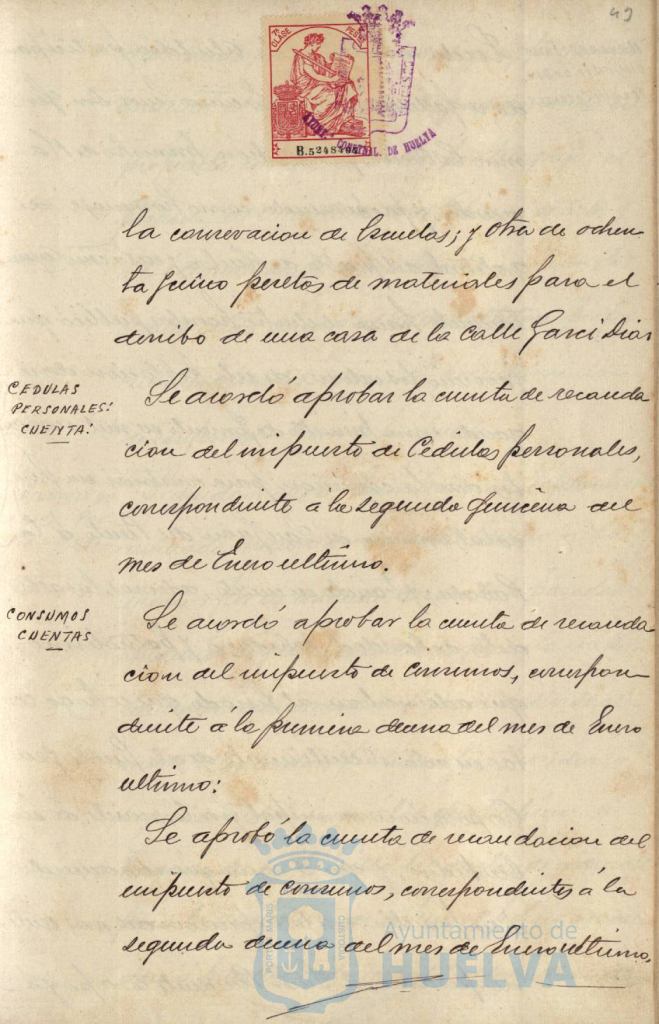 49
7ª CLASE
B.5248465
AYUNT. CONSTNAL. DE HUELVA
la conservacion de Escuelas; y otra de ochen-
ta y cinco pesetas de materiales para el
derribo de una casa de la calle Garci Dias
CEDULAS
PERSONALES:
CUENTA:
Se acordó aprobar la cuenta de recauda
cion del impuesto de Cedulas personales,
correspondiente á la segunda quincena del
mes de Enero ultimo.
CONSUMOS
CUENTAS
Se acordó aprobar la cuenta de recauda
cion del impuesto de consumos, correspon-
diente á la primera decena del mes de Enero
ultimo:
Se aprobó la cuenta de recaudacion del
impuesto de consumos, correspondientes á la
segunda decena del mes de Enero ultimo.
PORTUS MARIS
Ayuntamiento de
HUELVA